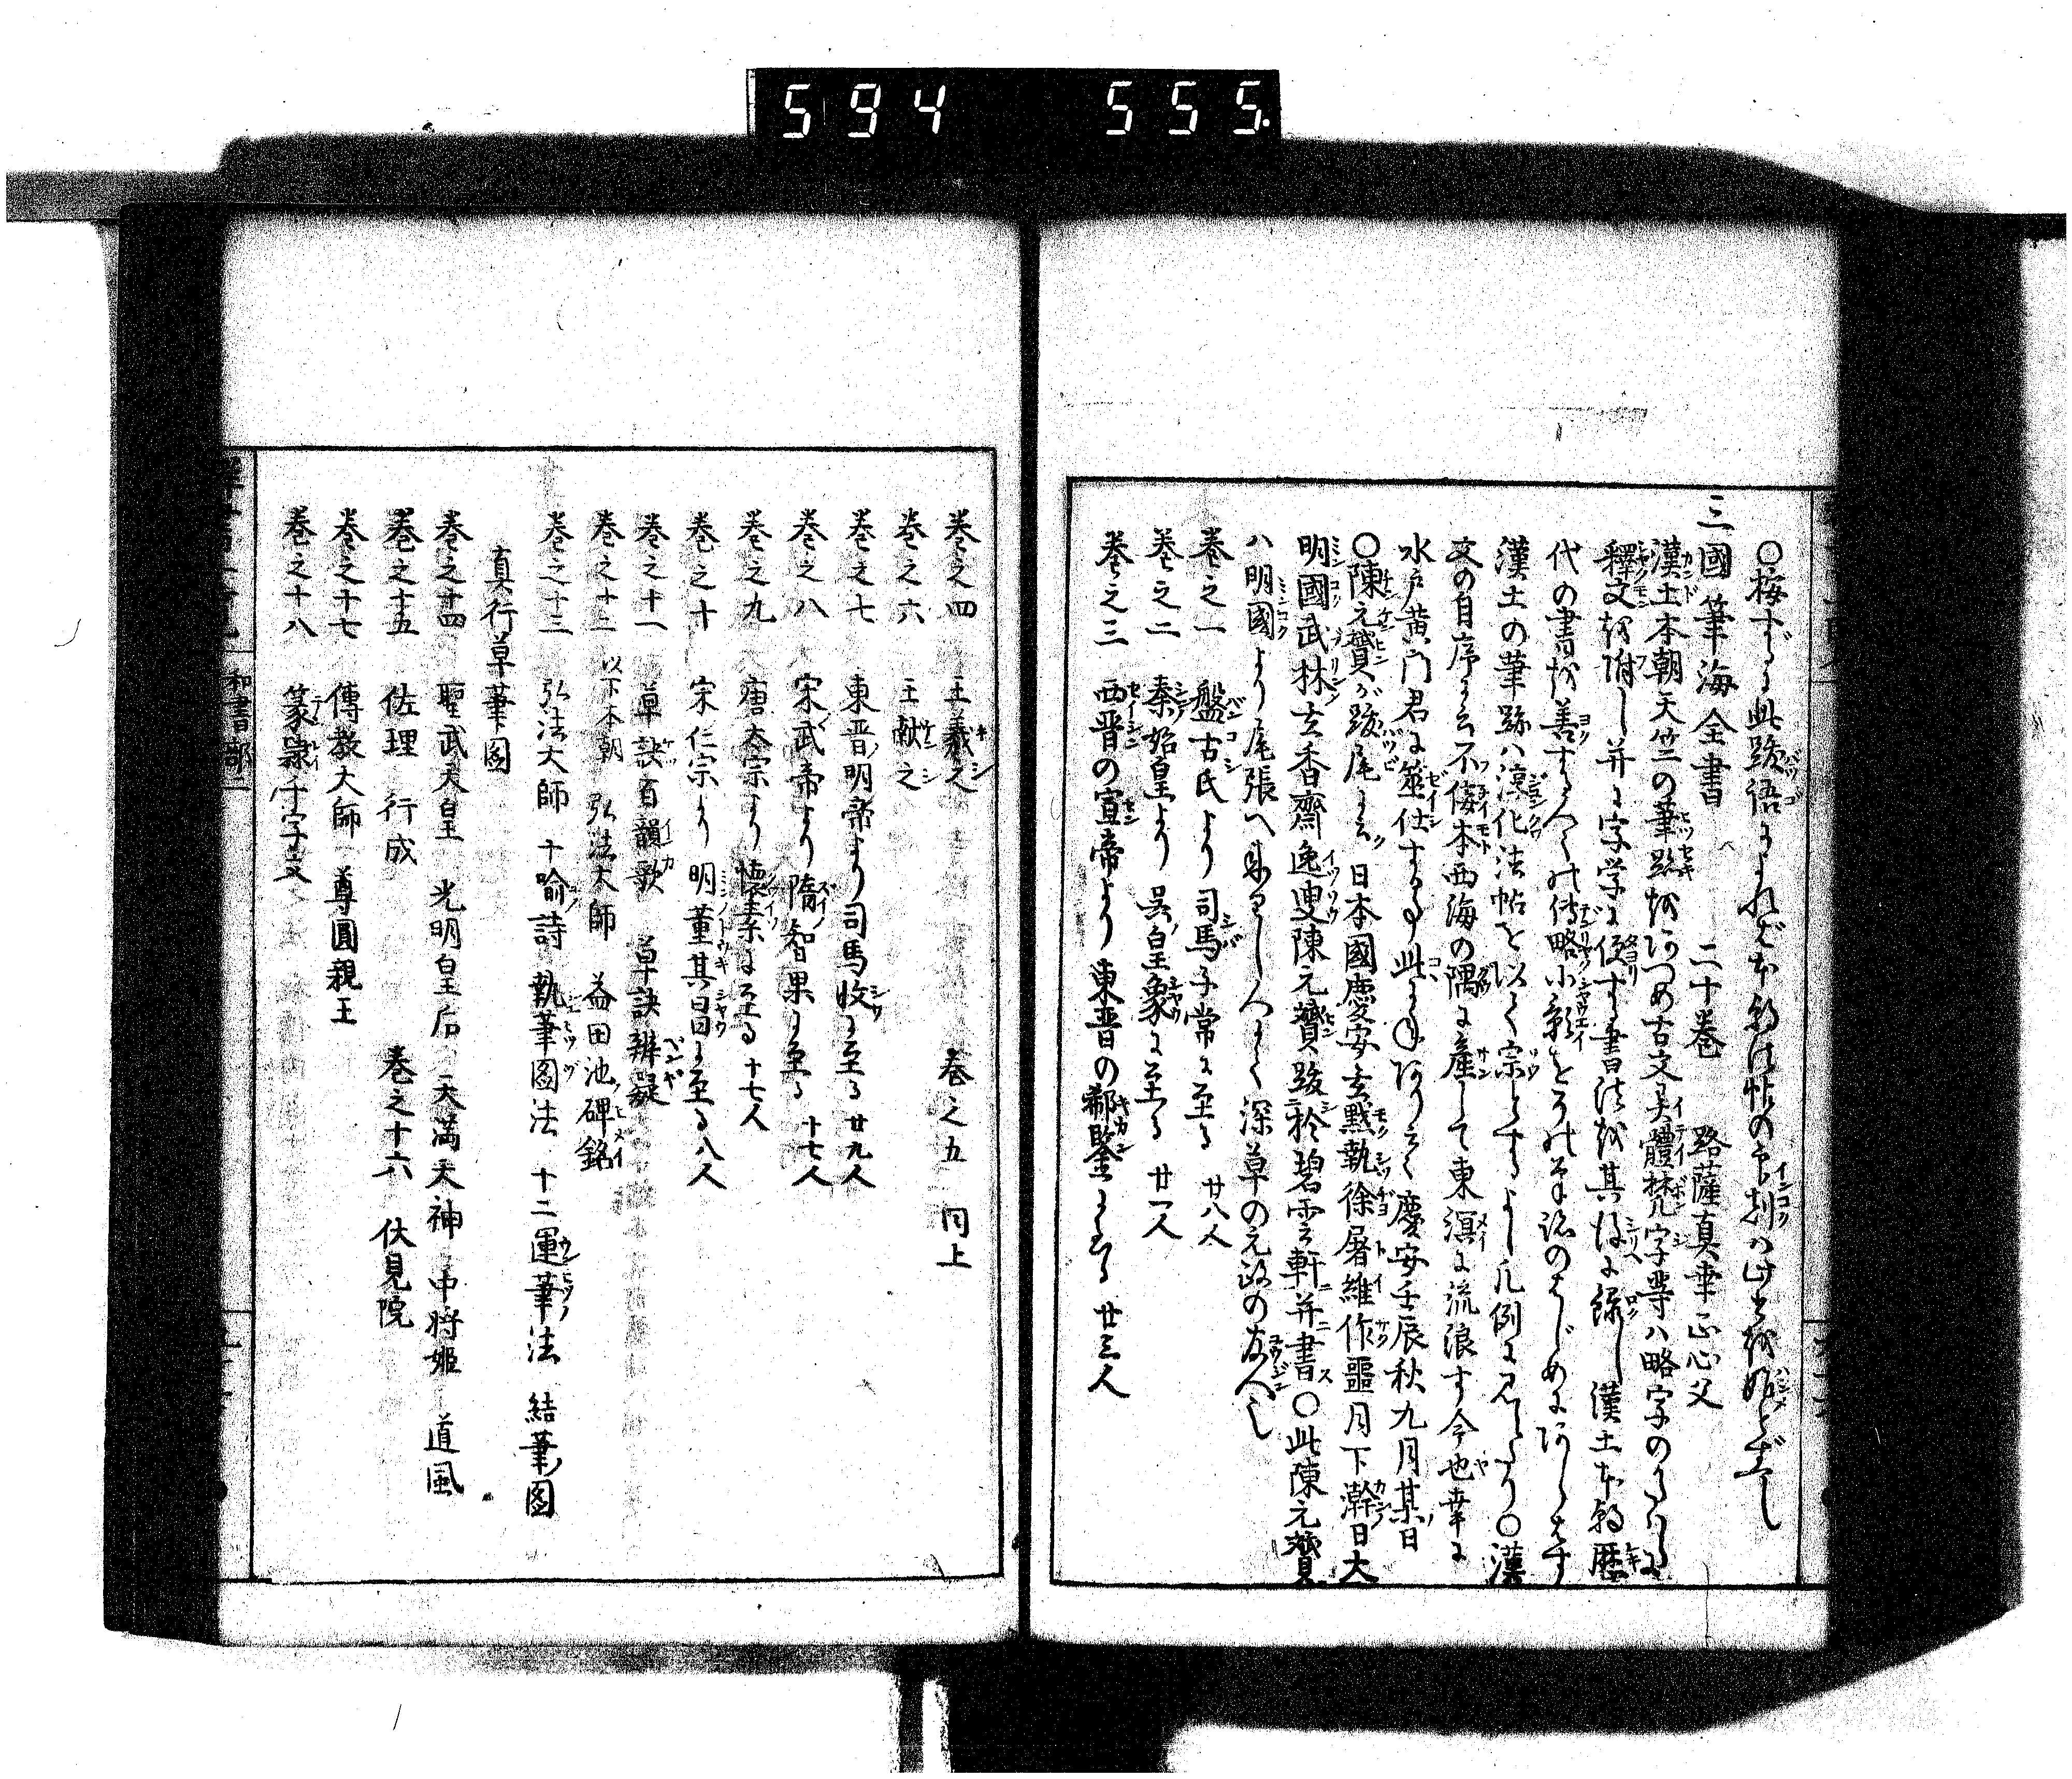 594 555
〇按ずるに此跋語によれば本朝法帖の印刻は此書を始とすべし
三國筆海全書 二十巻 路薩真幸正心父
漢土本朝天竺の筆跡をあつめ古文異體梵字等ハ略字のかたハらに
釋文を附し并に字学に便する書法を其後に録し漢土本朝歴
代の書を善する人々の傳略小影をその筆跡のはじめにあらはす
漢土の筆跡ハ淳化法帖を以て宗とするよし凡例に見へたり〇漢
文の自序に云不佞本西海の隅に産して東溟に流浪す今也幸に
水戸黄門君に筮仕する 此に 慶安壬辰秋九月某日
〇陳元贇が跋尾に云日本國慶安玄黙執徐屠維作噩月下澣日大
明國武林玄香齋逸叟陳元贇跋於碧雲軒并書〇此陳元贇
ハ明國より尾張へ来りし人にて深草の元政の友人也
巻之一 盤古氏より司馬子常に至る 廿八人
巻之二 秦始皇より呉皇象に至る 廿一人
巻之三 西晋の宣帝より東晋の郗鑒に至る 廿三人
巻之四 王羲之 巻之五 同上
巻之六 王献之
巻之七 東晋明帝より司馬攸に至る廿九人
巻之八 宋武帝より隋智果に至る 十七人
巻之九 唐太宗より懐素に至る 十七人
巻之十 宋仁宗より明董其昌に至る八人
巻之十一 草訣百韻歌 草訣辨疑
巻之十二 以下本朝 弘法大師 益田池碑銘
巻之十三 弘法大師 十喻詩 執筆圖法 十二運筆法 結筆圖
真行草筆圖
巻之十四 聖武天皇 光明皇后 天満天神 中将姫 道風
巻之十五 佐理 行成 巻之十六 伏見院
巻之十七 傳教大師 尊圓親王
巻之十八 篆隷千字文
和書部二